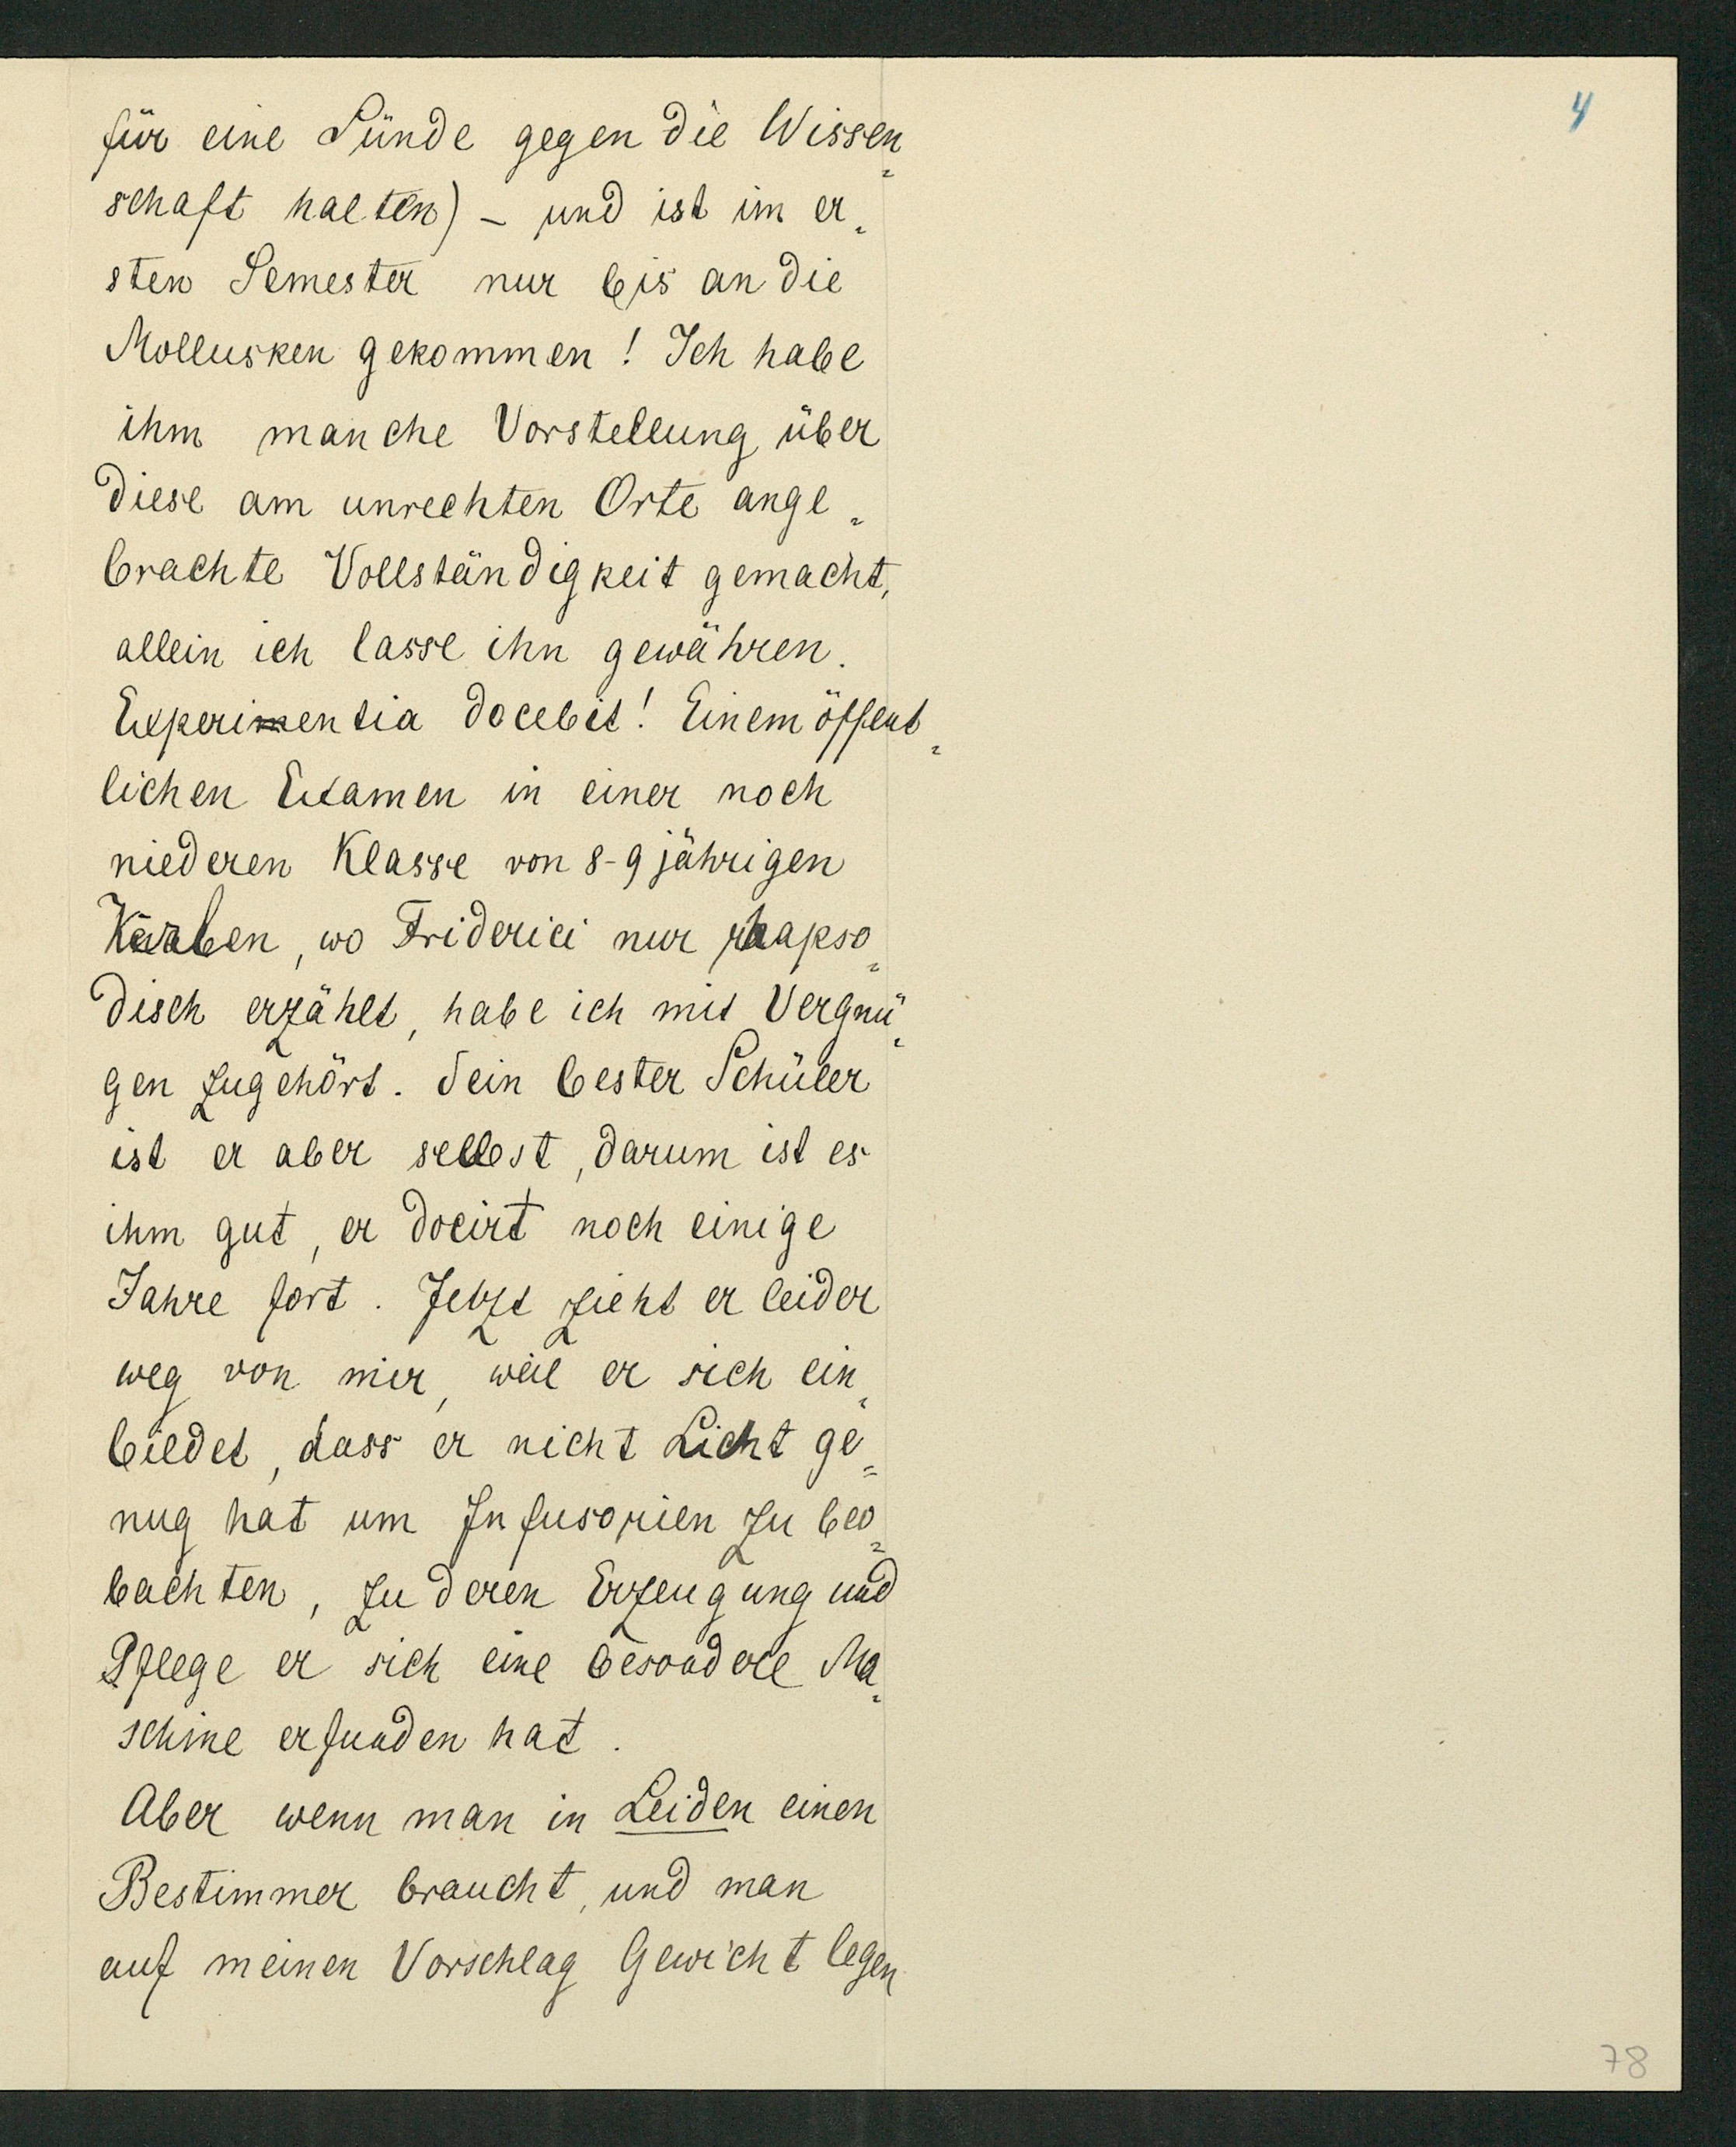 4
für eine Sünde gegen die Wissen-
schaft halten) – und ist im er-
sten Semester nur bis an die
Mollusken gekommen! Ich habe
ihm manche Vorstellung über
diese am unrechten Orte ange-
brachte Vollständigkeit gemacht,
allein ich lasse ihn gewähren.
Experimentia docebit! Einem öffent-
lichen Examen in einer noch
niederen Klasse von 8-9 jährigen
Knaben, wo Friderici nur rhapso-
disch erzählt, habe ich mit Vergnü-
gen zugehört. Sein bester Schüler
ist er aber selbst, darum ist es
ihm gut, er docirt noch einige
Jahre fort. Jetzt zieht er leider
weg von mir, weil er sich ein-
bildet, dass er nicht Licht ge=
nug hat um Infusorien zu beo-
bachten, zu deren Erzeugung und
Pflege er sich eine besondere Ma-
schine erfunden hat.
Aber wenn man in Leiden einen
Bestimmer braucht, und man
auf meinen Vorschlag Gewicht legen
78